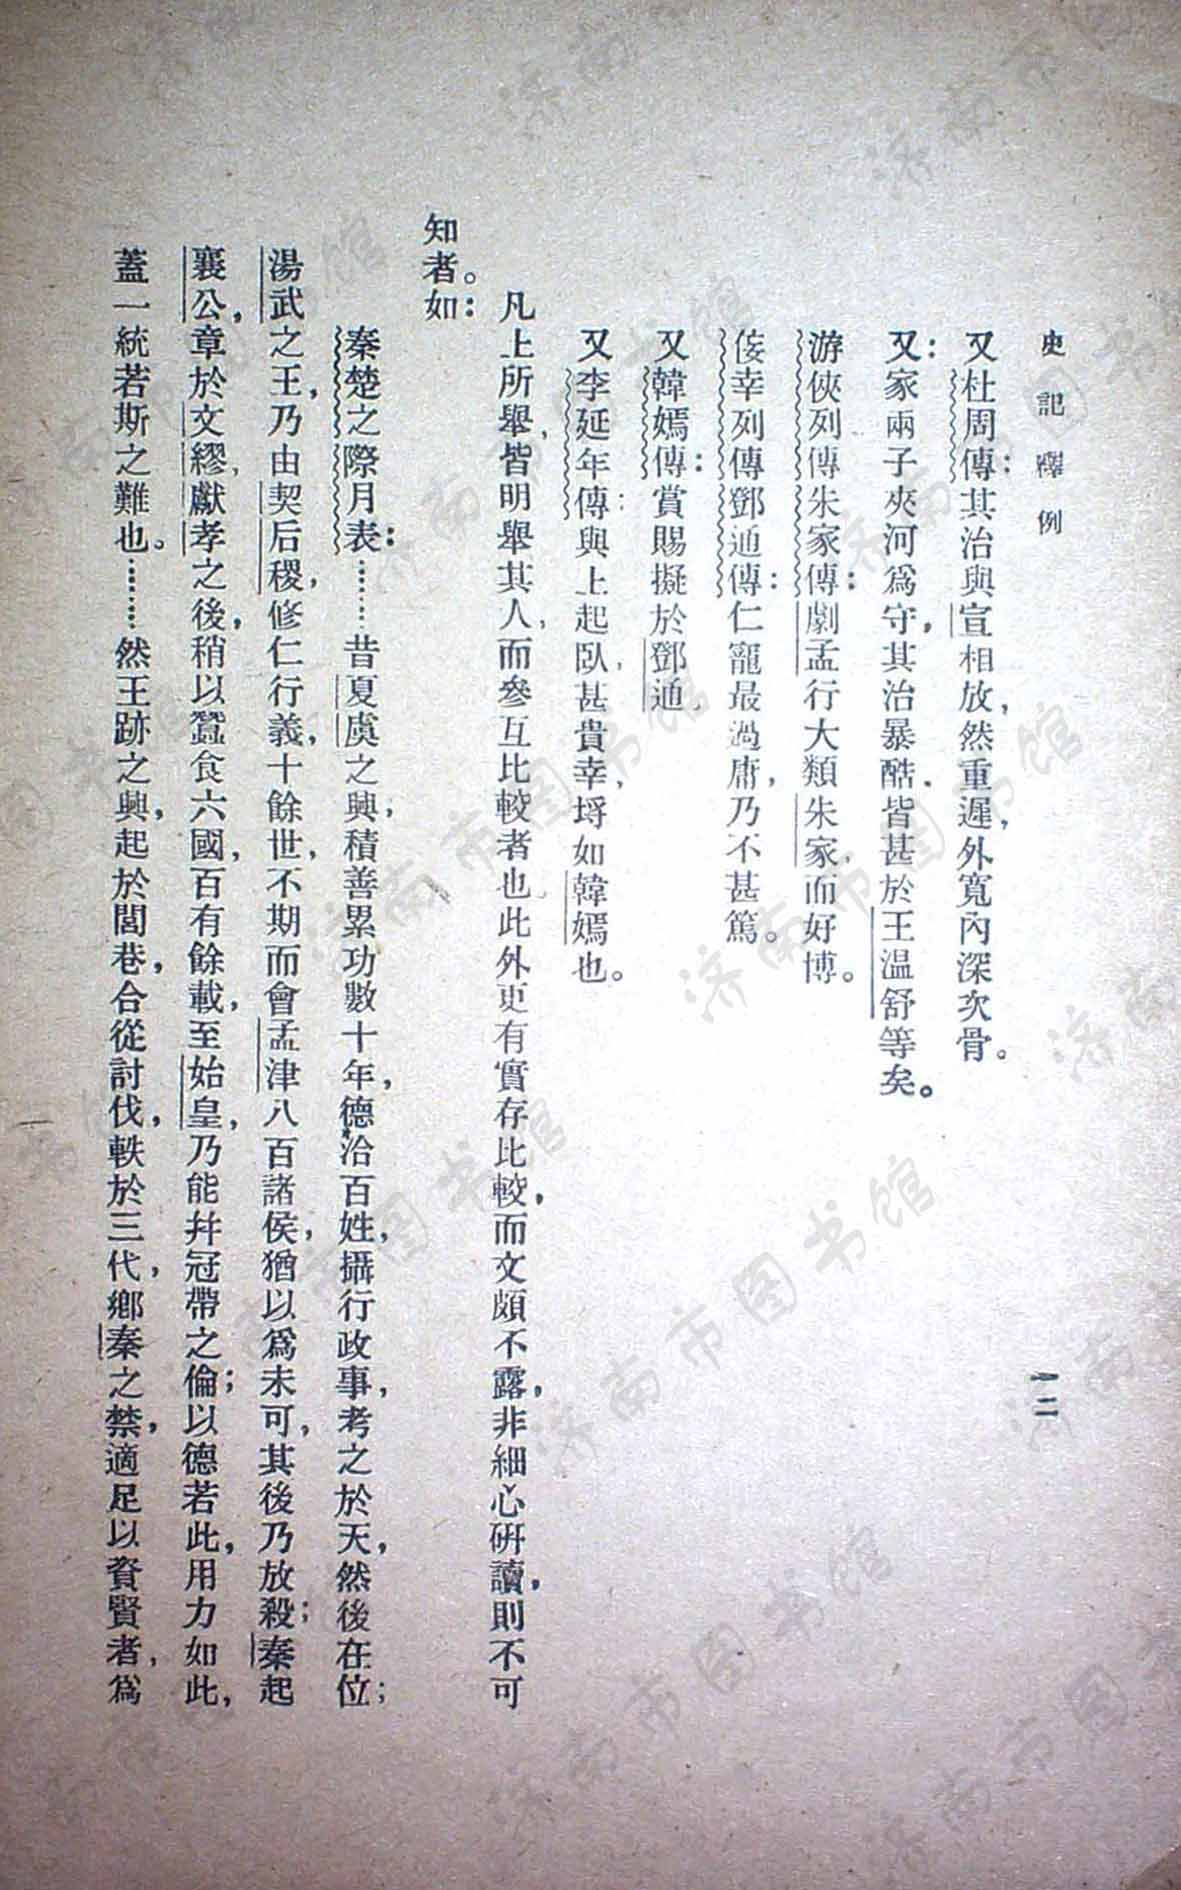 史記釋例
一二
又杜周傳：其治與宣相放，然重遲，外寬內深次骨。
又：家兩子夾河爲守，其治暴酷，皆甚於王温舒等矣。
游俠列傳朱家傳：劇孟行大類朱家，而好博。
佞幸列傳鄧通傳：仁寵最過庸，乃不甚篤。
又韓嫣傳：賞賜擬於鄧通。
又李延年傳：與上起臥，甚貴幸，埒如韓嫣也。
凡上所舉，皆明舉其人，而參互比較者也。此外更有實存比較，而文頗不露，非細心研讀，則不可
知者。如：
秦楚之際月表：……昔夏虞之興，積善累功數十年，德洽百姓，攝行政事，考之於天，然後在位；
湯武之王，乃由契后稷，修仁行義，十餘世，不期而會孟津八百諸侯，猶以爲未可，其後乃放殺；秦起
襄公，章於文繆，獻孝之後，稍以蠶食六國，百有餘載，至始皇，乃能幷冠帶之倫；以德若此，用力如此，
蓋一統若斯之難也。……然王跡之興，起於閭巷，合從討伐，軼於三代，鄉秦之禁，適足以資賢者，爲
济南市图书馆